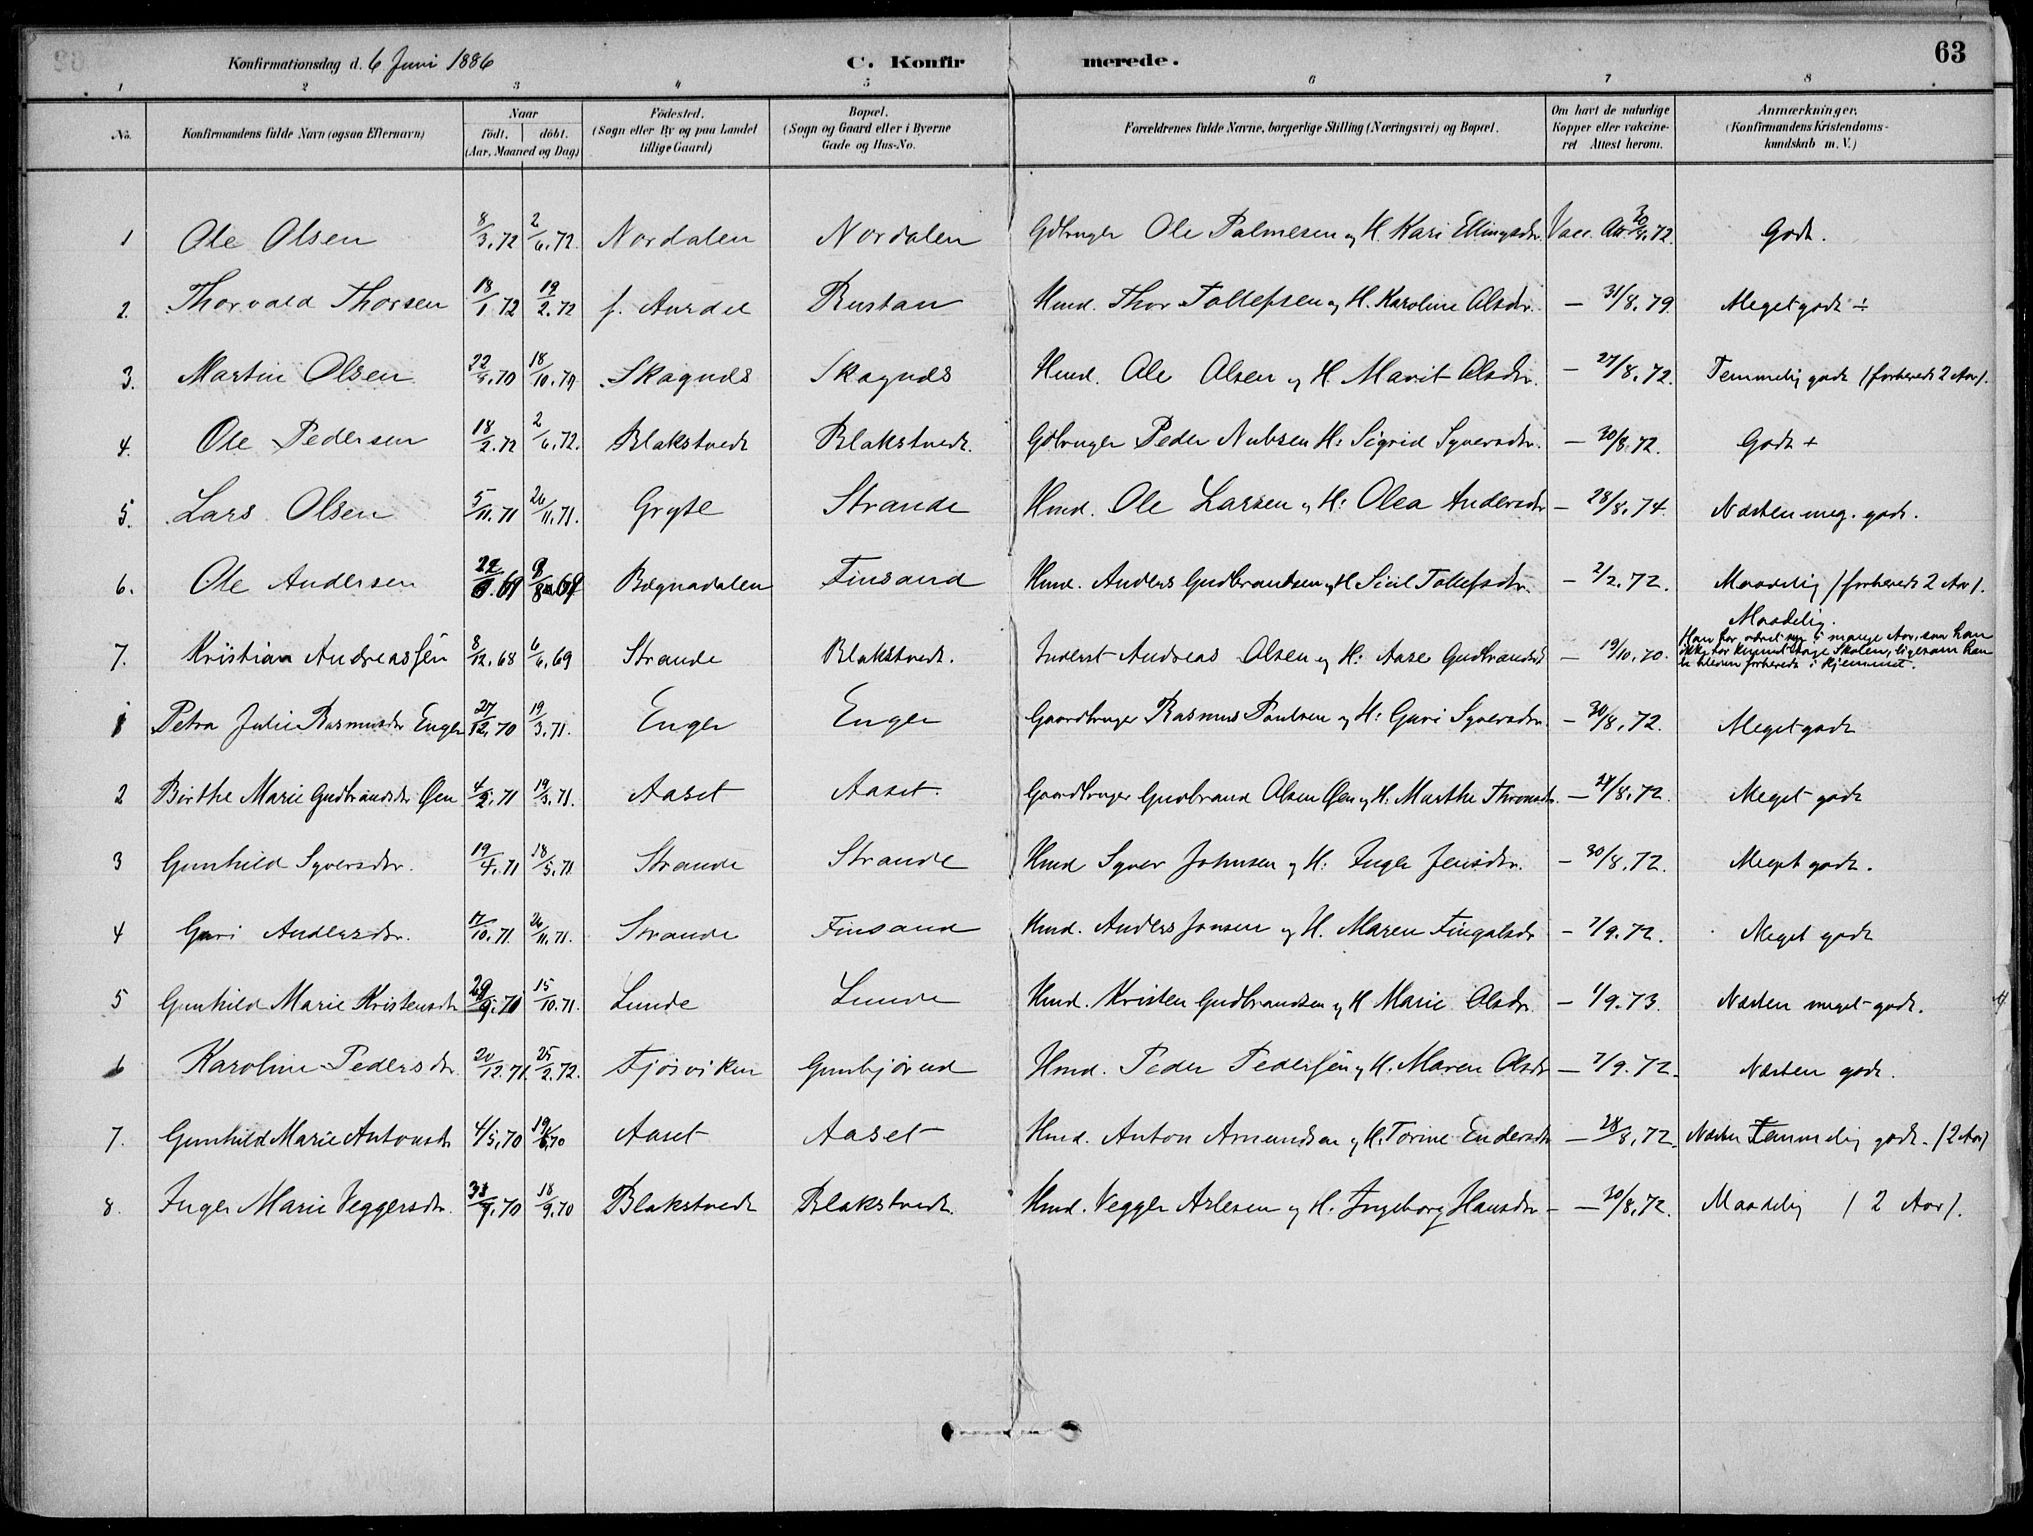 Konfirmationsdag d. 6 Juni 1886 C. Konfir merede. 63
1 2 3 4 5 6 7 8
No. Konfirmandens fulde Navn (ogsaa Efternavn) Naar födt. döbt. (Aar, Maaned og Dag) Födested. (Sogn eller By og paa Landet tillige Gaard) Bopæl. (Sogn og Gaard eller i Byerne Gade og Hus-No. Forældrenes fulde Navne, borgerlige Stilling (Næringsvei) og Bopæl. Om havt de naturlige Kopper eller vakcineret Attest herom. Anmærkninger. (Konfirmandens Kristendomskundskab m. V.)
1 Ole Olsen 8/3.72 2/6.72. Nordalen Nordalen Gdbruger Ole Palmesen og H. Kari Ellingsdtr. Vacc. Att. 30/8.72. Godt.
2. Thorvald Thorsen 18/1.72 19/2.72 s. Aurdal Rustan Hmd. Thor Tollefsen og H. Karoline Olsdtr. — 31/8.79. Meget godt ÷
3. Martin Olsen 18/10.70 Skagnds Skagnds Hmd. Ole Olsen og H. Marit Olsdtr. — 27/8.72. Temmelig godt (forberedt 2 Aar).
4. Ole Pedersen 18/2.72 2/6.72. Blakstvedt Blakstvedt. Gdbruger Peder Nubsen H: Sigrid Syversdtr. — 30/8.72. Godt +
5. Lars Olsen 5/11.71 26/11.71. Gryte Strande Hmd. Ole Larsen og H: Olea Andersdtr — 28/8.74. Næsten meg. godt.
6. Ole Andersen Bægnadalen Finsand Hmd. Anders Gudbrandsen og H Siril Tollefsdtr. — 2/2.72. Maadelig (forberedt 2 Aar).
7. Kristian Andreassen 8/12.68 6/6.69 Strande Blakstvedt. Inderst Andreas Olsen og H: Aase Gudbrandsdt — 19/10.70. Maadelig.
Han har været syg i mange Aar, saa han
ikke har kunnet søge Skolen, ligesom han
er bleven forberedt i Hjemmet.
1 Petra Julie Rasmusdtr Enger 27/12.70 19/3.71. Enger Enger Gaardbruger Rasmus Paulsen og H: Guri Syversdtr. — 30/8.72. Meget godt
2 Birthe Marie Gudbrandsdtr Øen 4/2.71 19/3.71. Aaset Aaset. Gaardbruger Gudbrand Olsen Øen og H. Marthe Thronsdtr. — 28/8.72. Meget godt
3 Gunhild Syversdtr. 19/4.71 18/5.71. Strande Strande Hmd Syver Johnsen og H. Inger Jensdtr. — 30/8.72. Meget godt.
4 Guri Andersdtr. 17/10.71. 26/11.71. Strande Finsand Hmd. Anders Jonsen og H. Maren Fingalsdtr — 7/9.72. Meget godt
5 Gunhild Marie Kristensdtr 15/10.71. Lunde Lunde Hmd. Kristen Gudbrandsen og H Marie Olsdtr. — 1/9.73. Næsten meget godt.
6 Karoline Pedersdtr. 20/12.71. 25/2.72. Fjösviken Gunbjörud Hmd. Peder Pedersen og H. Maren Olsdtr — 7/9.72. Næsten godt.
7. Gunhild Marie Antonsdt 4/5.70 19/6.70 Aaset Aaset Hmd. Anton Amundsen og H. Torine Endersdtr — 28/8.72. Næsten Temmelig godt. (2 Aar)
8. Inger Marie Veggersdtr. 18/9.70 Blakstvedt Blakstvedt. Hmd. Vegger Arlesen og H. Ingeborg Hansdtr — 30/8.72. Maadelig (2 Aar).